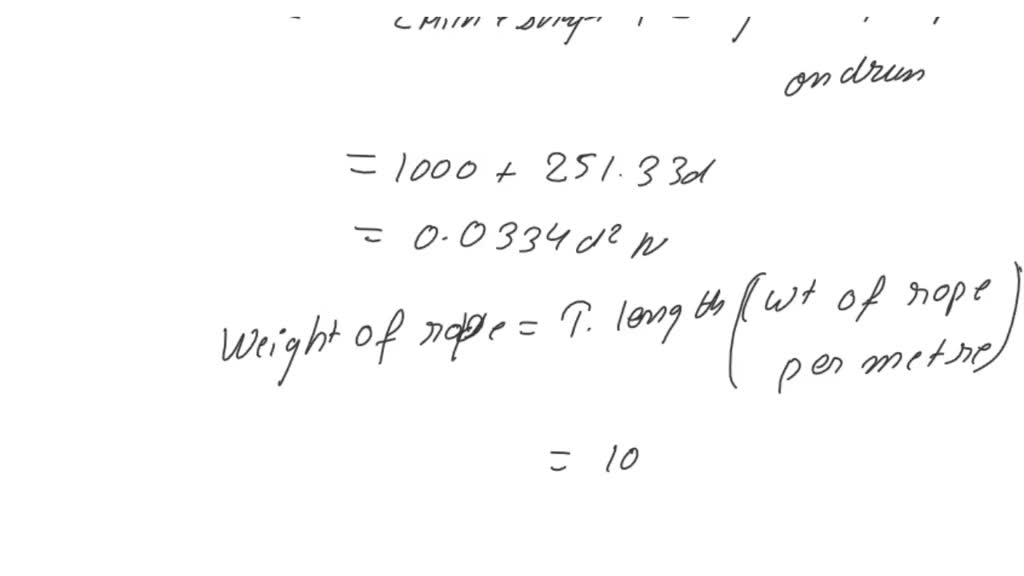 on drum
= 1000 + 251.33d
= 0.0334d² N
Weight of rope = T. length (wt of rope
per metre)
= 10